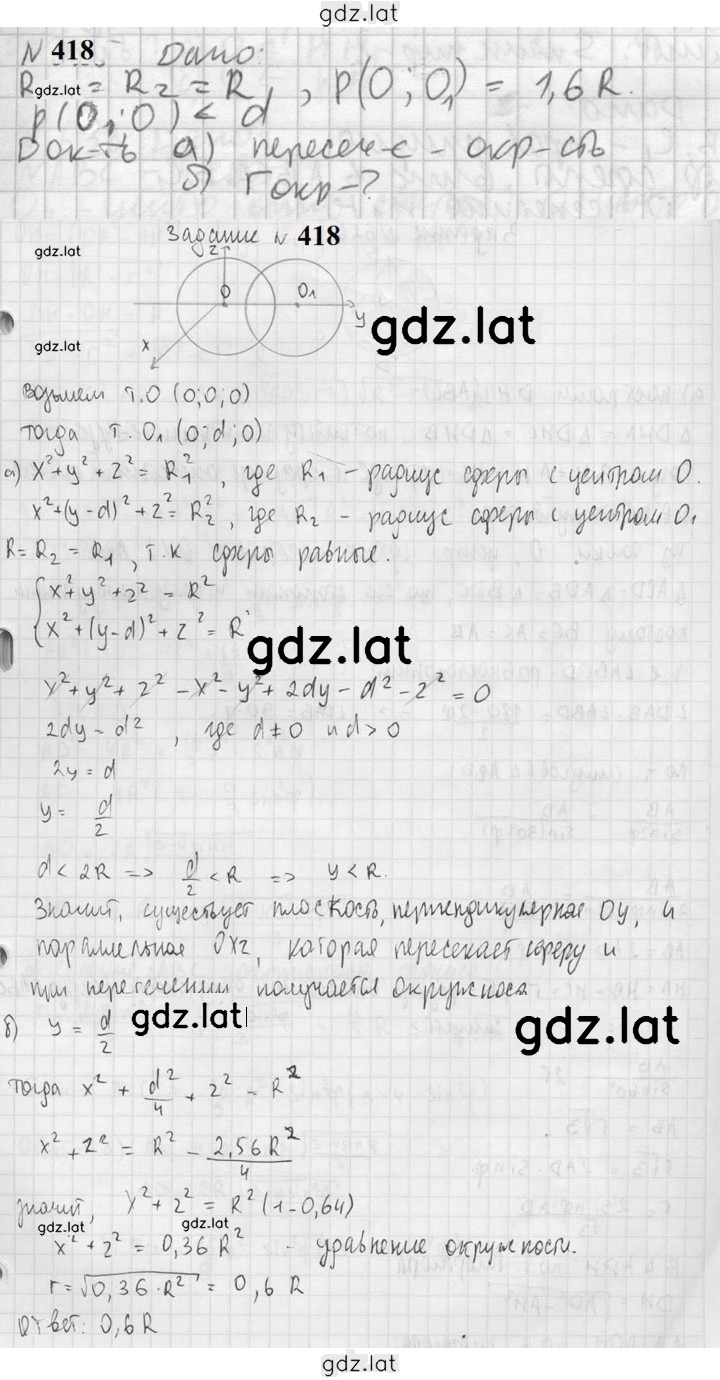 gdz.lat
N 418 Дано:
R gdz.lat = R₂ = R, p(O; O₁) = 1,6 R.
p(O₁; O) < d
Док-ть а) пересеч-е - окр-сть
б) r окр-?
Задание N 418
gdz.lat
z
O
O₁
y
gdz.lat
gdz.lat
x
Возьмем т.O (0;0;0)
тогда т. O₁ (0;d;0)
а) x²+y²+z² = R₁², где R₁ - радиус сферы с центром O.
x²+(y-d)²+z² = R₂², где R₂ - радиус сферы с центром O₁
R = R₂ = R₁, т.к сферы равные.
x²+y²+z² = R²
x²+(y-d)²+z² = R²
gdz.lat
x²+y²+z²-x²-y²+2dy-d²-z² = 0
2dy-d², где d≠0 и d>0
2y = d
y = d/2
d < 2R => d/2 < R => y < R.
Значит, существует плоскость, перпендикулярная Oy, и
параллельная Oxz, которая пересекает сферу и
при пересечении получается окружнос
б) y = d/2
gdz.lat
gdz.lat
тогда x² + d²/4 + z² = R²
x²+z² = R² - 2,56R²/4
значит, x²+z² = R²(1-0,64)
gdz.lat
gdz.lat
x²+z² = 0,36 R² - уравнение окружности.
r = √0,36·R² = 0,6 R
Ответ: 0,6 R
gdz.lat